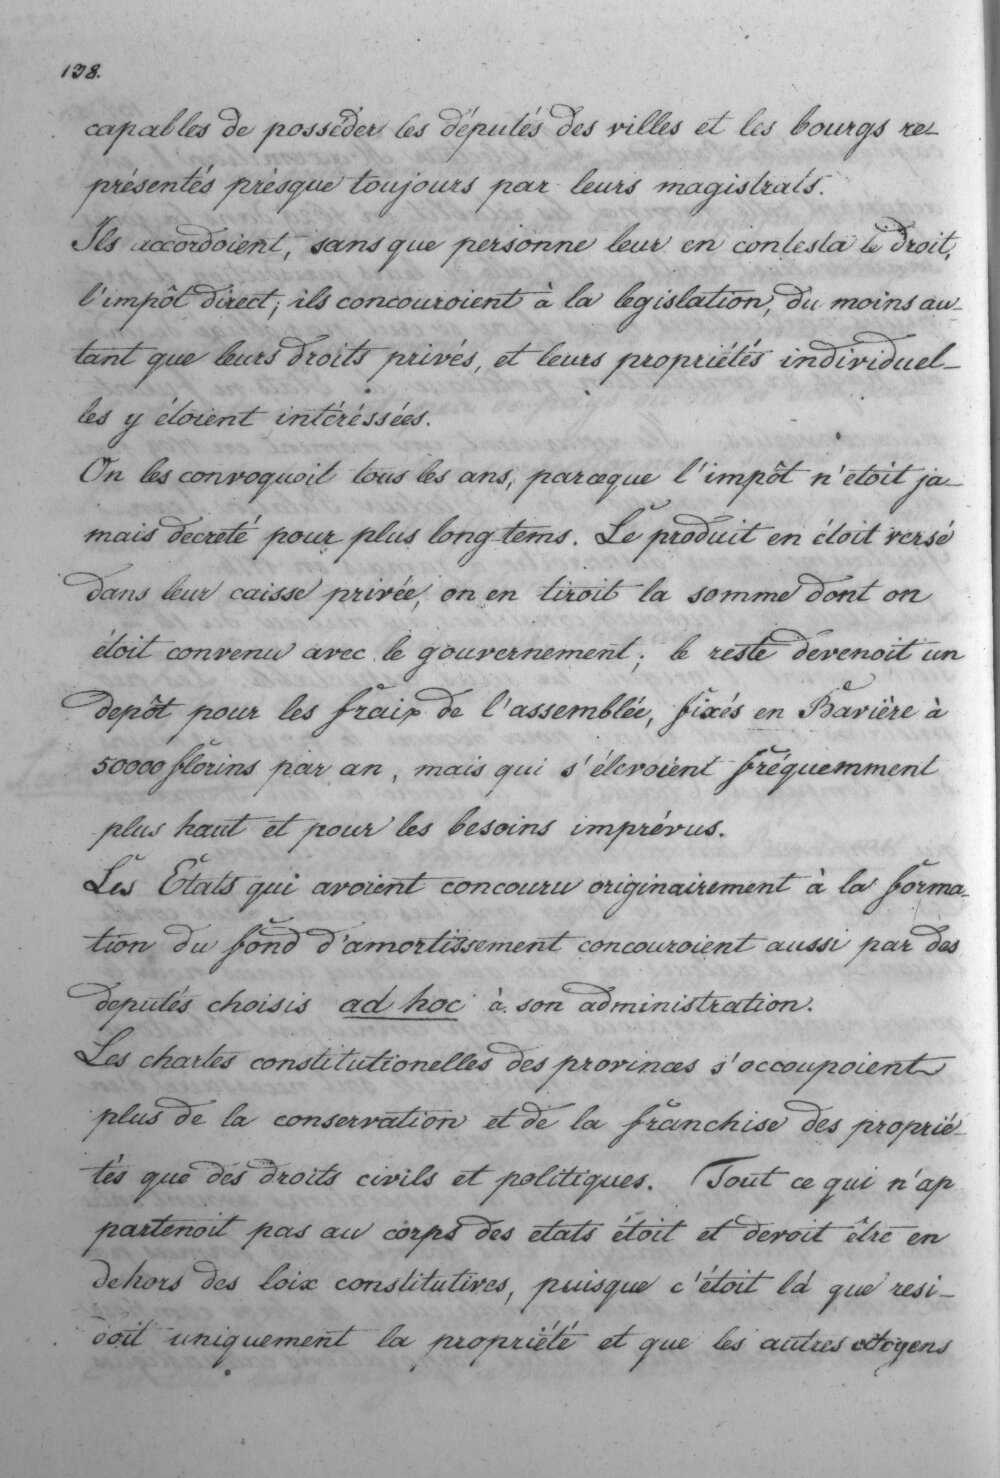 138.
capables de posseder les députés des villes et les bourgs re-
présentés prèsque toujours par leurs magistrats.
Ils accordoient, sans que personne leur en contesta le droit,
l'impôt direct; ils concouroient à la legislation, du moins au-
tant que leurs droits privés, et leurs propriétés individuel-
les y étoient intéréssées.
On les convoquoit tous les ans, parceque l'impôt n'etoit ja-
mais decreté pour plus long-tems. Le produit en étoit versé
dans leur caisse privée, on en tiroit la somme dont on
étoit convenu avec le gouvernement; le reste devenoit un
depôt pour les fraix de l'assemblée, fixés en Bavière à
50000 florins par an, mais qui s'élevoient fréquemment
plus haut et pour les besoins imprévus.
Les Etats qui avoient concouru originairement à la forma-
tion du fond d'amortissement concouroient aussi par des
deputés choisis ad hoc à son administration.
Les chartes constitutionelles des provinces s'occoupoient
plus de la conservation et de la franchise des proprié-
tés que des droits civils et politiques. Tout ce qui n'ap
partenoit pas au corps des etats étoit et devoit être en
dehors des loix constitutives, puisque c'étoit là que resi-
doit uniquement la propriété et que les autres citoyens